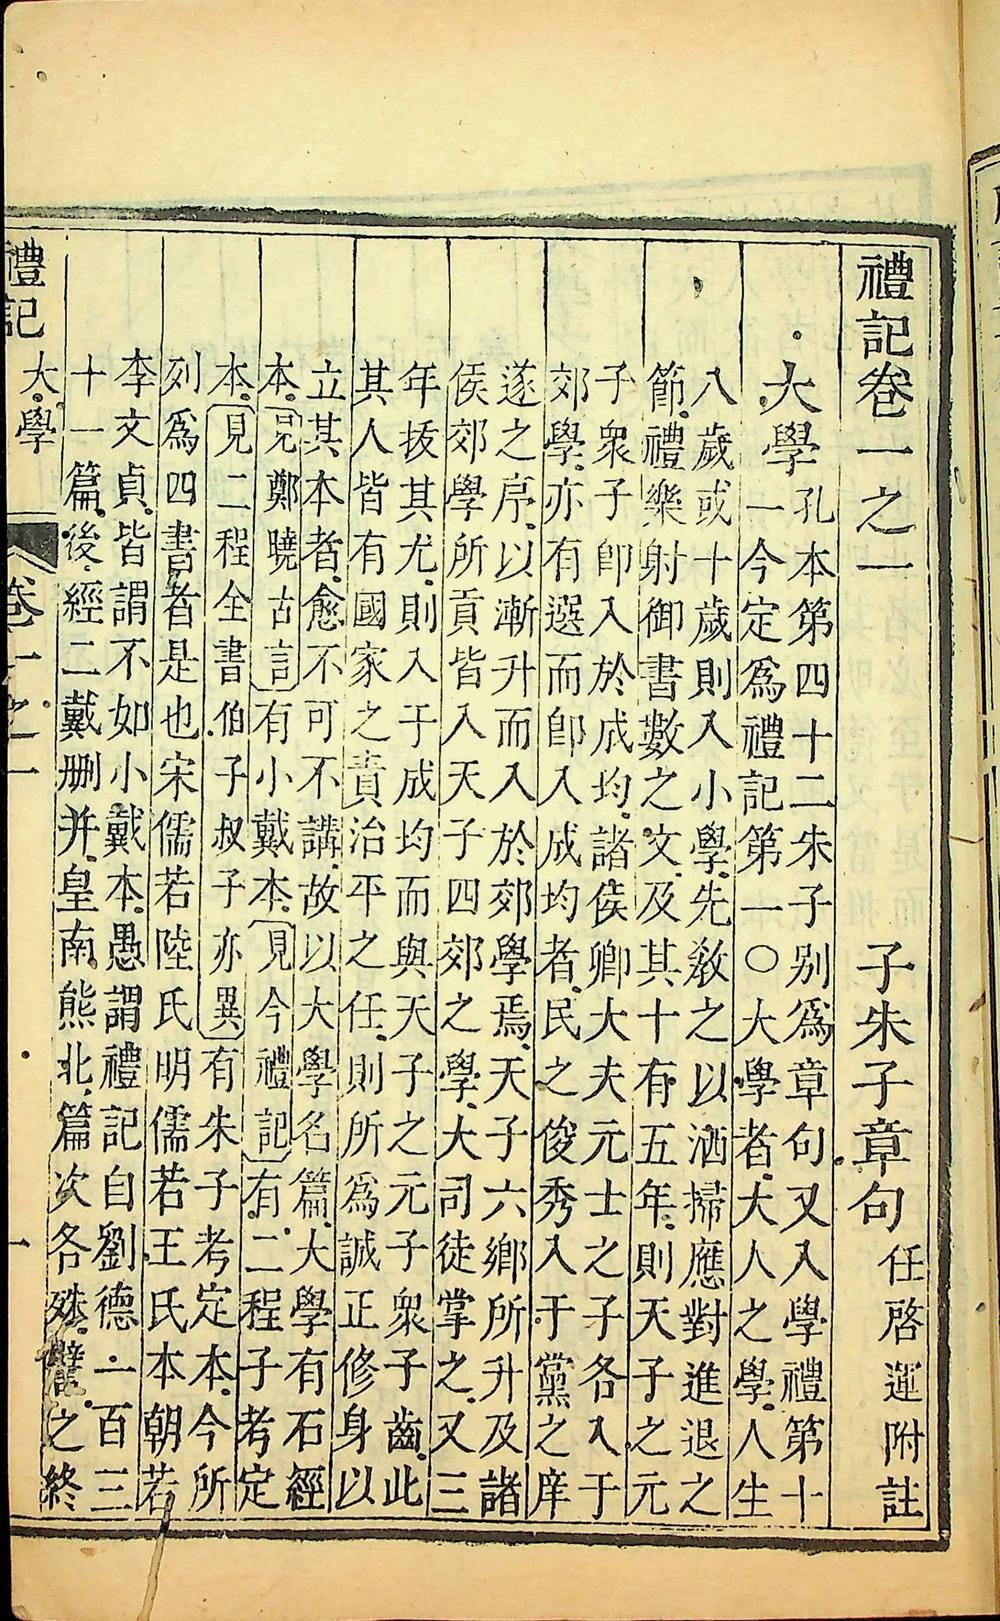 禮記卷一之一
子朱子章句 任啓運附註
大學 孔本第四十二朱子別爲章句又入學禮第十
一今定爲禮記第一○大學者大人之學人生
八歲或十歲則入小學先敎之以洒掃應對進退之
節禮樂射御書數之文及其十有五年則天子之元
子衆子卽入於成均諸侯卿大夫元士之子各入于
郊學亦有選而卽入成均者民之俊秀入于黨之庠
遂之序以漸升而入於郊學焉天子六鄉所升及諸
侯郊學所貢皆入天子四郊之學大司徒掌之又三
年拔其尤則入于成均而與天子之元子衆子齒此
其人皆有國家之責治平之任則所爲誠正修身以
立其本者愈不可不講故以大學名篇大學有石經
本見鄭曉古言有小戴本見今禮記有二程子考定
本見二程全書伯子叔子亦異有朱子考定本今所
列爲四書者是也宋儒若陸氏明儒若王氏本朝若
李文貞皆謂不如小戴本愚謂禮記自劉德一百三
十一篇後經二戴刪并皇南熊北篇次各殊之終
禮記 大學 卷一之一 一